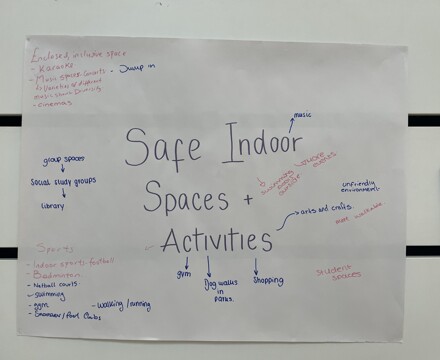 Enclosed inclusive space
- Karaoke
- Music space
- Jump in
music
- cinemas
Safe Indoor
Spaces +
Activities
music
group spaces
Social study groups
library
swimming
unfriendly
environment
arts and crafts
more walkable
student
spaces
gym
Dog walks
in
parks
Shopping
Sports
- Indoor sports - football
- Badminton
- Netball courts
- Swimming
- gym
- walking / running
- Snooker/Pool Clubs